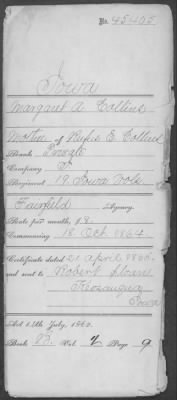 No. 45405
Iowa
Margaret A. Collins
Mother of Rufus E. Collins
Rank Private
Company
Regiment 19 Iowa Vols
Fairfield Agency.
Rate per month, $8
Commencing 18 Oct 1864
Certificate dated 21 April 1865
and sent to Robert Sloan
Keosauqua
Iowa
Act 14th July, 1862.
Book Vol. Page 9